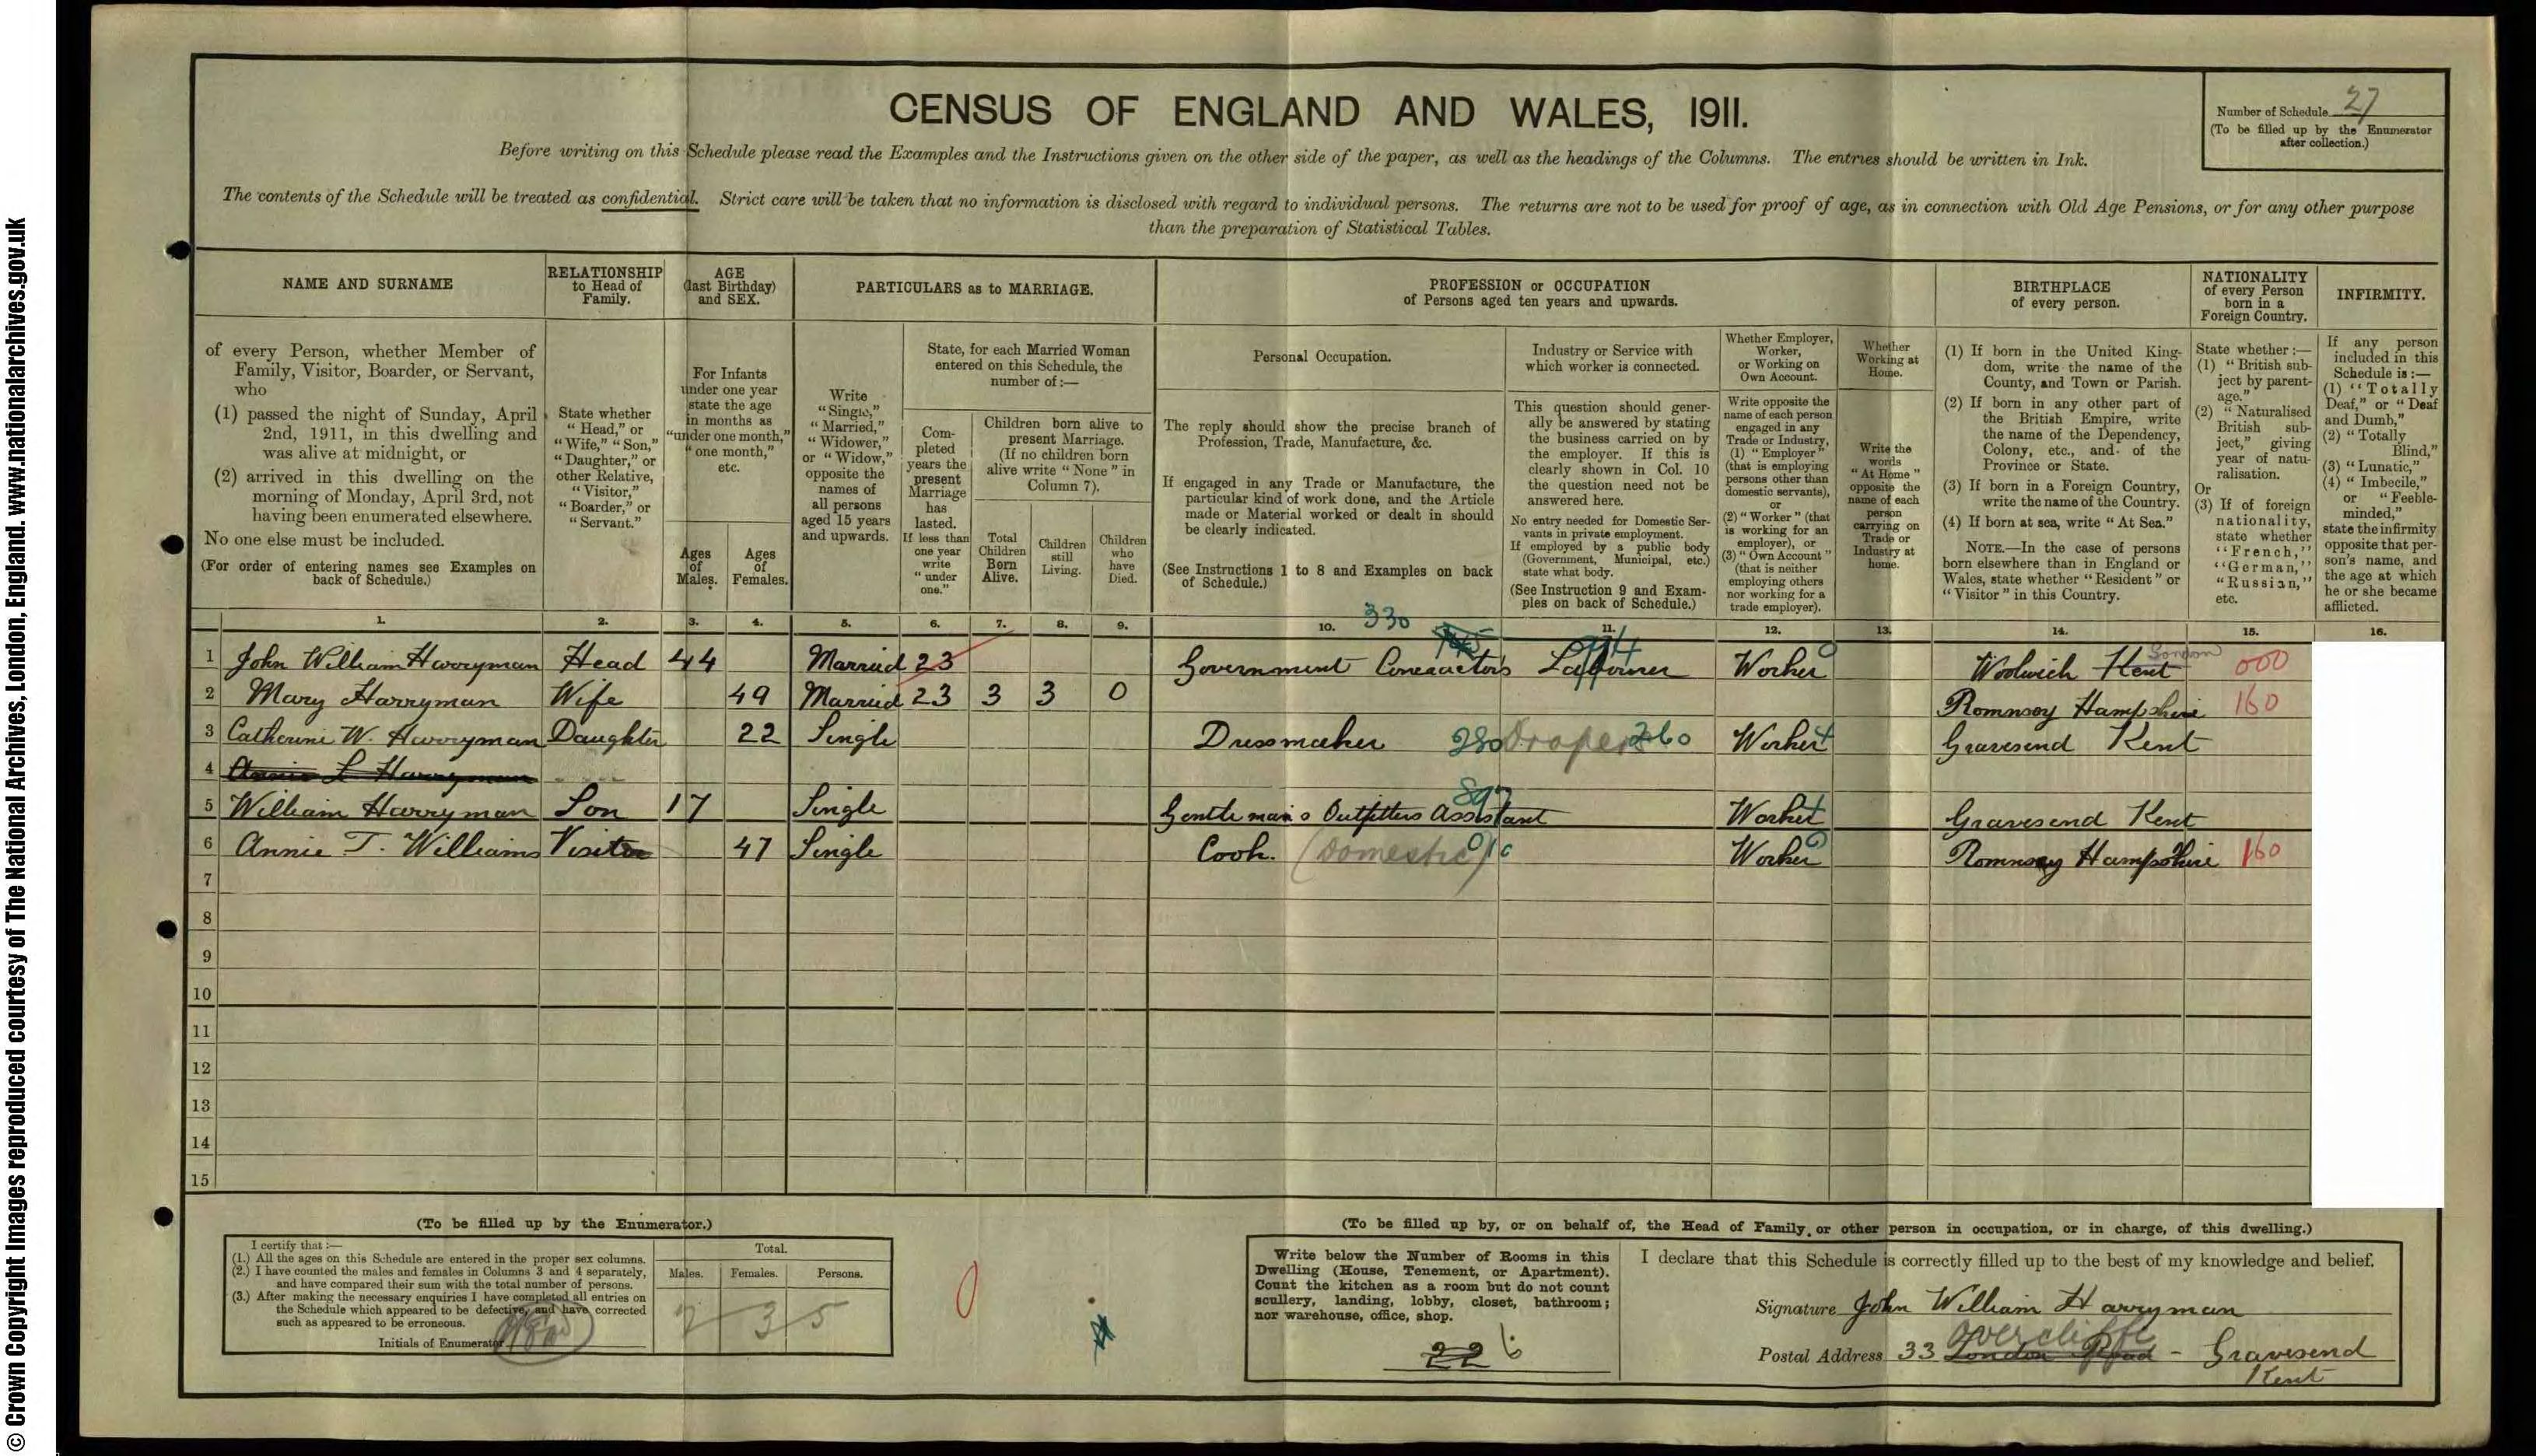 © Crown Copyright Images reproduced courtesy of The National Archives, London, England. www.nationalarchives.gov.uk
CENSUS OF ENGLAND AND WALES, 1911.
Number of Schedule 27
(To be filled up by the Enumerator
after collection.)
Before writing on this Schedule please read the Examples and the Instructions given on the other side of the paper, as well as the headings of the Columns. The entries should be written in Ink.
The contents of the Schedule will be treated as confidential. Strict care will be taken that no information is disclosed with regard to individual persons. The returns are not to be used for proof of age, as in connection with Old Age Pensions, or for any other purpose
than the preparation of Statistical Tables.
NAME AND SURNAME
of every Person, whether Member of
Family, Visitor, Boarder, or Servant,
who
(1) passed the night of Sunday, April
2nd, 1911, in this dwelling and
was alive at midnight, or
(2) arrived in this dwelling on the
morning of Monday, April 3rd, not
having been enumerated elsewhere.
No one else must be included.
(For order of entering names see Examples on
back of Schedule.)
RELATIONSHIP
to Head of
Family.
State whether
"Head," or
"Wife," "Son,"
"Daughter," or
other Relative,
"Visitor,"
"Boarder," or
"Servant."
AGE
(last Birthday)
and SEX.
For Infants
under one year
state the age
in months as
"under one month,"
"one month,"
etc.
Ages
of
Males.
Ages
of
Females.
PARTICULARS as to MARRIAGE.
Write
"Single,"
"Married,"
"Widower,"
or "Widow,"
opposite the
names of
all persons
aged 15 years
and upwards.
State, for each Married Woman
entered on this Schedule, the
number of:—
Com-
pleted
years the
present
Marriage
has
lasted.
If less than
one year
write
"under
one."
Children born alive to
present Marriage.
(If no children born
alive write "None" in
Column 7).
Total
Children
Born
Alive.
Children
still
Living.
Children
who
have
Died.
PROFESSION or OCCUPATION
of Persons aged ten years and upwards.
Personal Occupation.
The reply should show the precise branch of
Profession, Trade, Manufacture, &c.
If engaged in any Trade or Manufacture, the
particular kind of work done, and the Article
made or Material worked or dealt in should
be clearly indicated.
(See Instructions 1 to 8 and Examples on back
of Schedule.)
Industry or Service with
which worker is connected.
This question should gener-
ally be answered by stating
the business carried on by
the employer. If this is
clearly shown in Col. 10
the question need not be
answered here.
No entry needed for Domestic Ser-
vants in private employment.
If employed by a public body
(Government, Municipal, etc.)
state what body.
(See Instruction 9 and Exam-
ples on back of Schedule.)
Whether Employer,
Worker,
or Working on
Own Account.
Write opposite the
name of each person
engaged in any
Trade or Industry,
(1) "Employer"
(that is employing
persons other than
domestic servants),
or
(2) "Worker" (that
is working for an
employer), or
(3) "Own Account"
(that is neither
employing others
nor working for a
trade employer).
Whether
Working at
Home.
Write the
words
"At Home"
opposite the
name of each
person
carrying on
Trade or
Industry at
home.
BIRTHPLACE
of every person.
(1) If born in the United King-
dom, write the name of the
County, and Town or Parish.
(2) If born in any other part of
the British Empire, write
the name of the Dependency,
Colony, etc., and of the
Province or State.
(3) If born in a Foreign Country,
write the name of the Country.
(4) If born at sea, write "At Sea."
NOTE.—In the case of persons
born elsewhere than in England or
Wales, state whether "Resident" or
"Visitor" in this Country.
NATIONALITY
of every Person
born in a
Foreign Country.
State whether:—
(1) "British sub-
ject by parent-
age."
(2) "Naturalised
British sub-
ject," giving
year of natu-
ralisation.
Or
(3) If of foreign
nationality,
state whether
"French,"
"German,"
"Russian,"
etc.
INFIRMITY.
If any person
included in this
Schedule is:—
(1) "Totally
Deaf," or "Deaf
and Dumb,"
(2) "Totally
Blind,"
(3) "Lunatic,"
(4) "Imbecile,"
or "Feeble-
minded,"
state the infirmity
opposite that per-
son's name, and
the age at which
he or she became
afflicted.
1. 2. 3. 4. 5. 6. 7. 8. 9. 10. 11. 12. 13. 14. 15. 16.
330
1 John William Harryman Head 44 Married 23 Government Contractors Labourer Worker 0 Woolwich Kent London 000
2 Mary Harryman Wife 49 Married 23 3 3 0 Romnsey Hampshire 160
3 Catherine W. Harryman Daughter 22 Single Dressmaker 280 Draper 260 Worker Gravesend Kent
4 Annie L Harryman
5 William Harryman Son 17 Single Gentleman's Outfitters Assistant 897 Worker Gravesend Kent
6 Annie T. Williams Visitor 47 Single Cook. (Domestic) 010 Worker 0 Romnsey Hampshire 160
7
8
9
10
11
12
13
14
15
(To be filled up by the Enumerator.)
I certify that:—
(1.) All the ages on this Schedule are entered in the proper sex columns.
(2.) I have counted the males and females in Columns 3 and 4 separately,
and have compared their sum with the total number of persons.
(3.) After making the necessary enquiries I have completed all entries on
the Schedule which appeared to be defective, and have corrected
such as appeared to be erroneous.
Initials of Enumerator
Total.
Males. Females. Persons.
2 3 5
0
(To be filled up by, or on behalf of, the Head of Family, or other person in occupation, or in charge, of this dwelling.)
Write below the Number of Rooms in this
Dwelling (House, Tenement, or Apartment).
Count the kitchen as a room but do not count
scullery, landing, lobby, closet, bathroom;
nor warehouse, office, shop.
22 6
I declare that this Schedule is correctly filled up to the best of my knowledge and belief.
Signature John William Harryman
Overcliffe
Postal Address 33 London Road - Gravesend
Kent